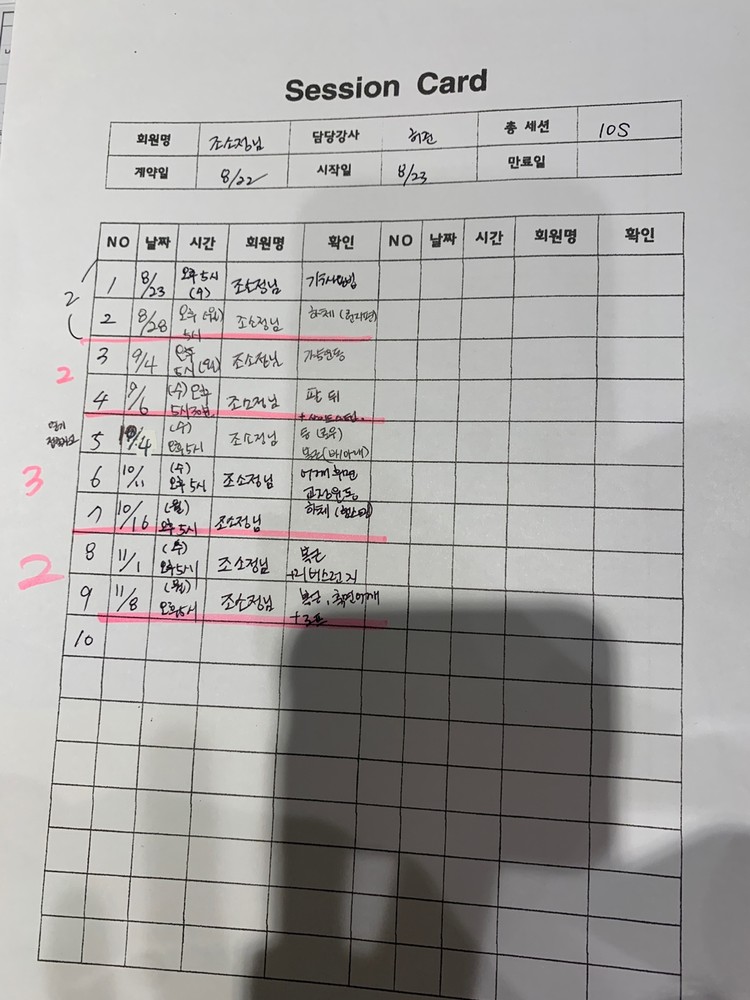 Session Card
회원명 조소정님 담당강사 허진 총 세션 10S
계약일 8/22 시작일 8/23 만료일
NO 날짜 시간 회원명 확인 NO 날짜 시간 회원명 확인
2
1 8/23 오후 5시 (수) 조소정님
2 8/28 오후 (월) 5시 조소정님 하체
2
3 9/4 오후 5시 (월) 조소정님
4 9/6 (수) 오후 5시30분 조소정님
5 10/4 (수) 오후 5시 조소정님 등
3
6 10/11 (수) 오후 5시 조소정님 어깨 후면 교정운동
7 10/16 (월) 오후 5시 조소정님 하체
2
8 11/1 (수) 오후 5시 조소정님 복근 +리버스런지
9 11/8 오후 5시 조소정님 복근, 측면어깨
10